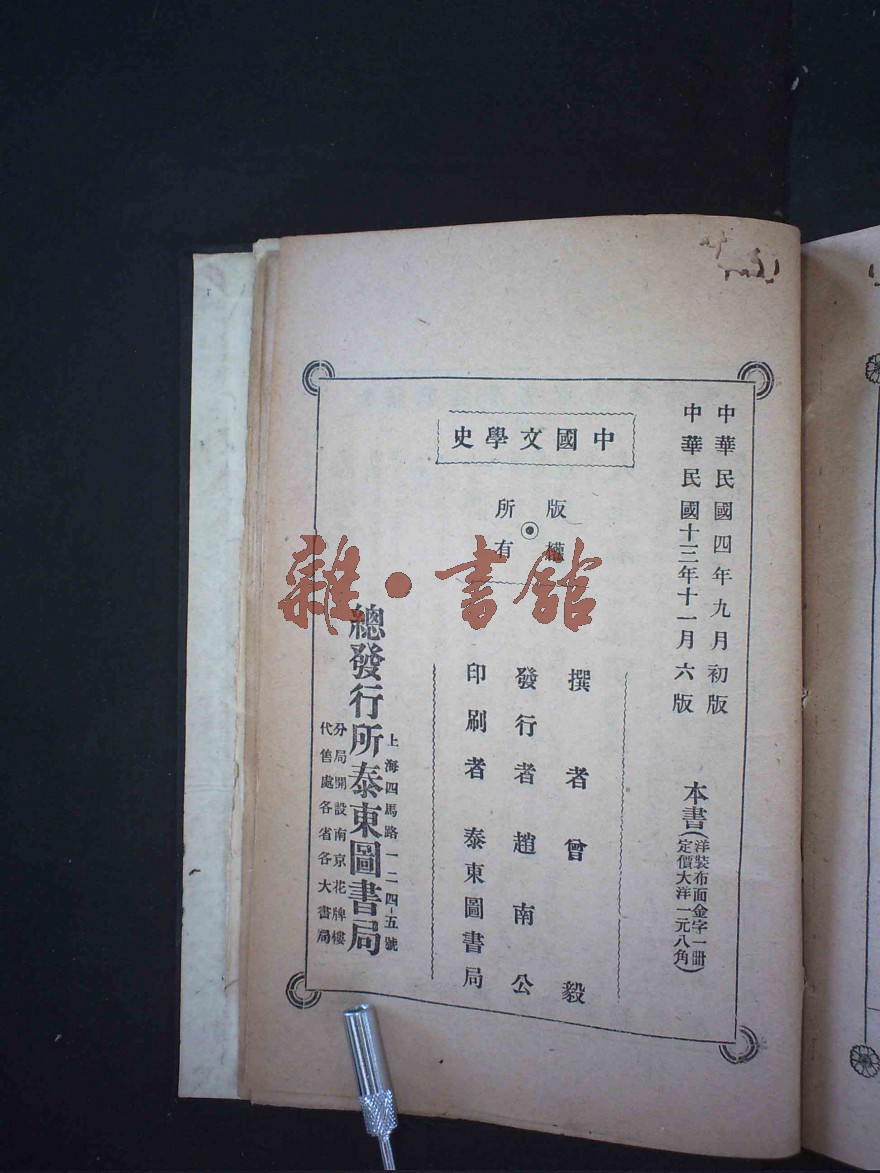 中華民國四年九月初版
中華民國十三年十一月六版
本書(洋裝布面金字一冊
定價大洋一元八角)
中國文學史
版權
所有
撰者曾毅
發行者趙南公
印刷者泰東圖書局
上海四馬路一二四-五號
總發行所泰東圖書局
分局開設南京花牌樓
代售處各省各大書局
雜·書館